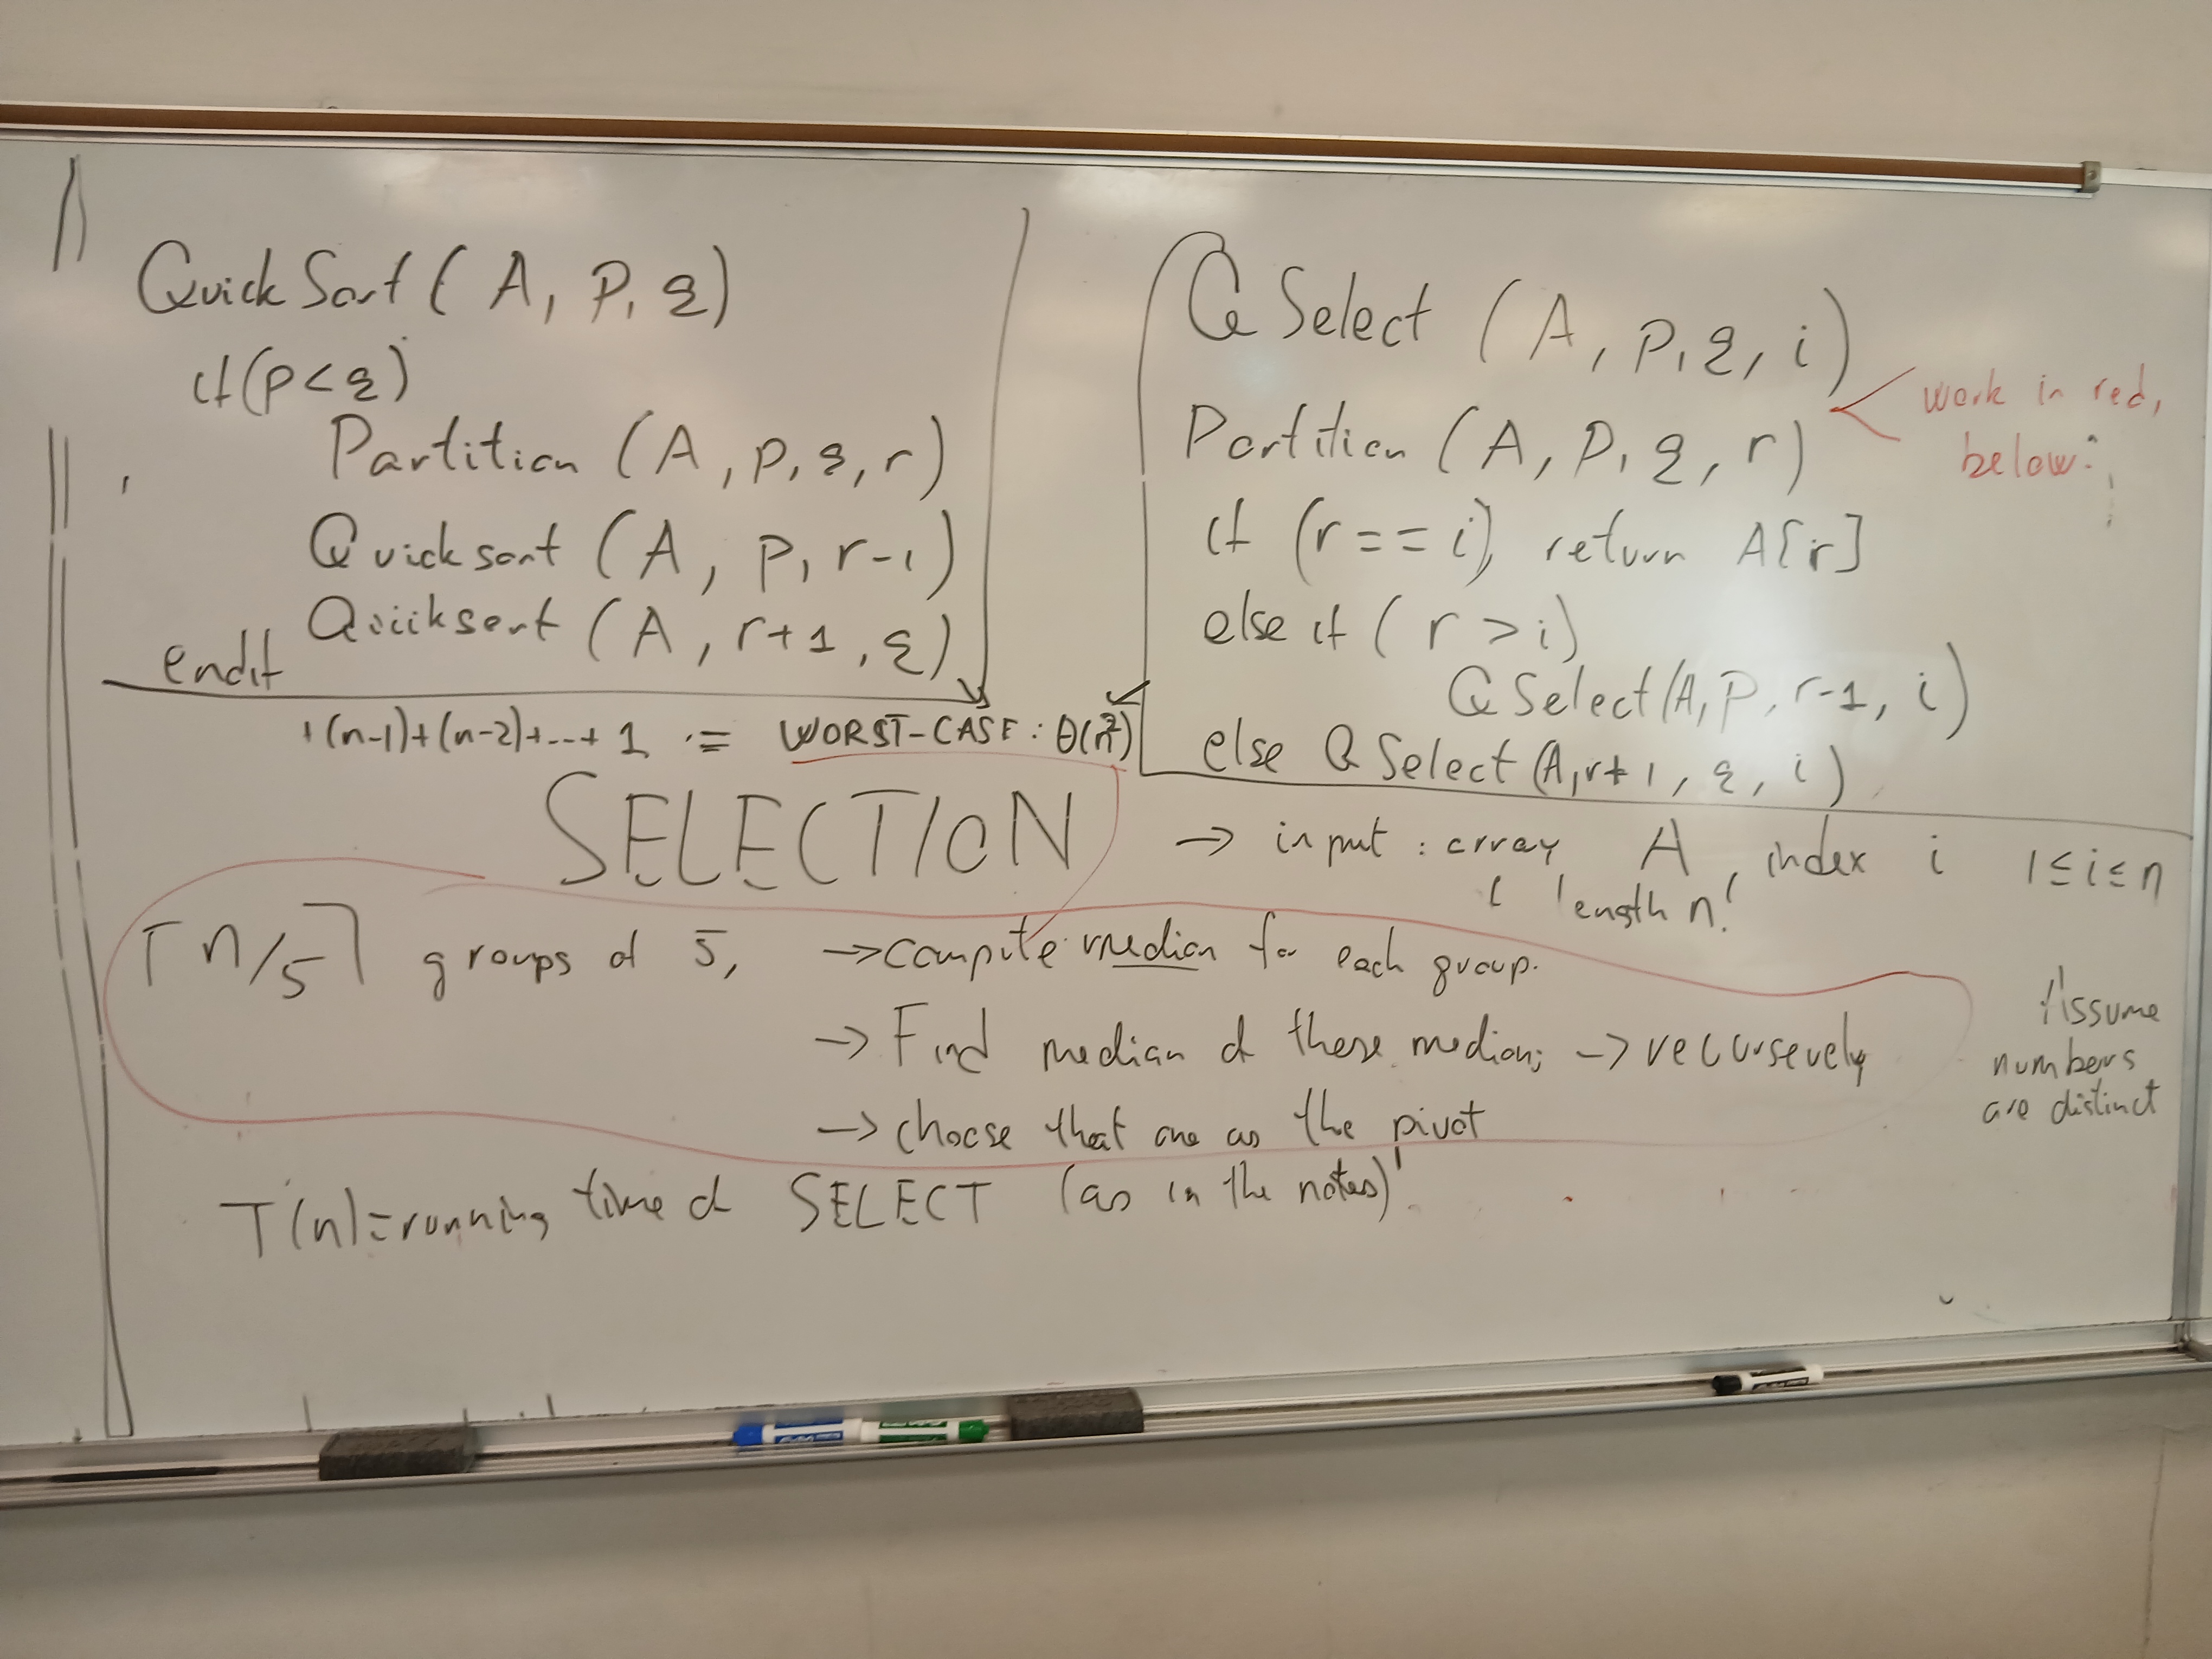 QuickSort (A, p, q)
if (p < q)
Partition (A, p, q, r)
Quicksort (A, p, r-1)
Quicksort (A, r+1, q)
endif
+(n-1)+(n-2)+...+ 1 := WORST-CASE : Θ(n²)
QSelect (A, p, q, i)
work in red,
below:
Partition (A, p, q, r)
if (r == i) return A[r]
else if (r > i)
QSelect (A, p, r-1, i)
else QSelect (A, r+1, q, i)
SELECTION → input : array A, index i 1 ≤ i ≤ n
( length n!
⌈n/5⌉ groups of 5, → compute median for each group.
→ Find median of these medians → recursevely
→ choose that one as the pivot
Assume
numbers
are distinct
T(n) = running time of SELECT (as in the notes)